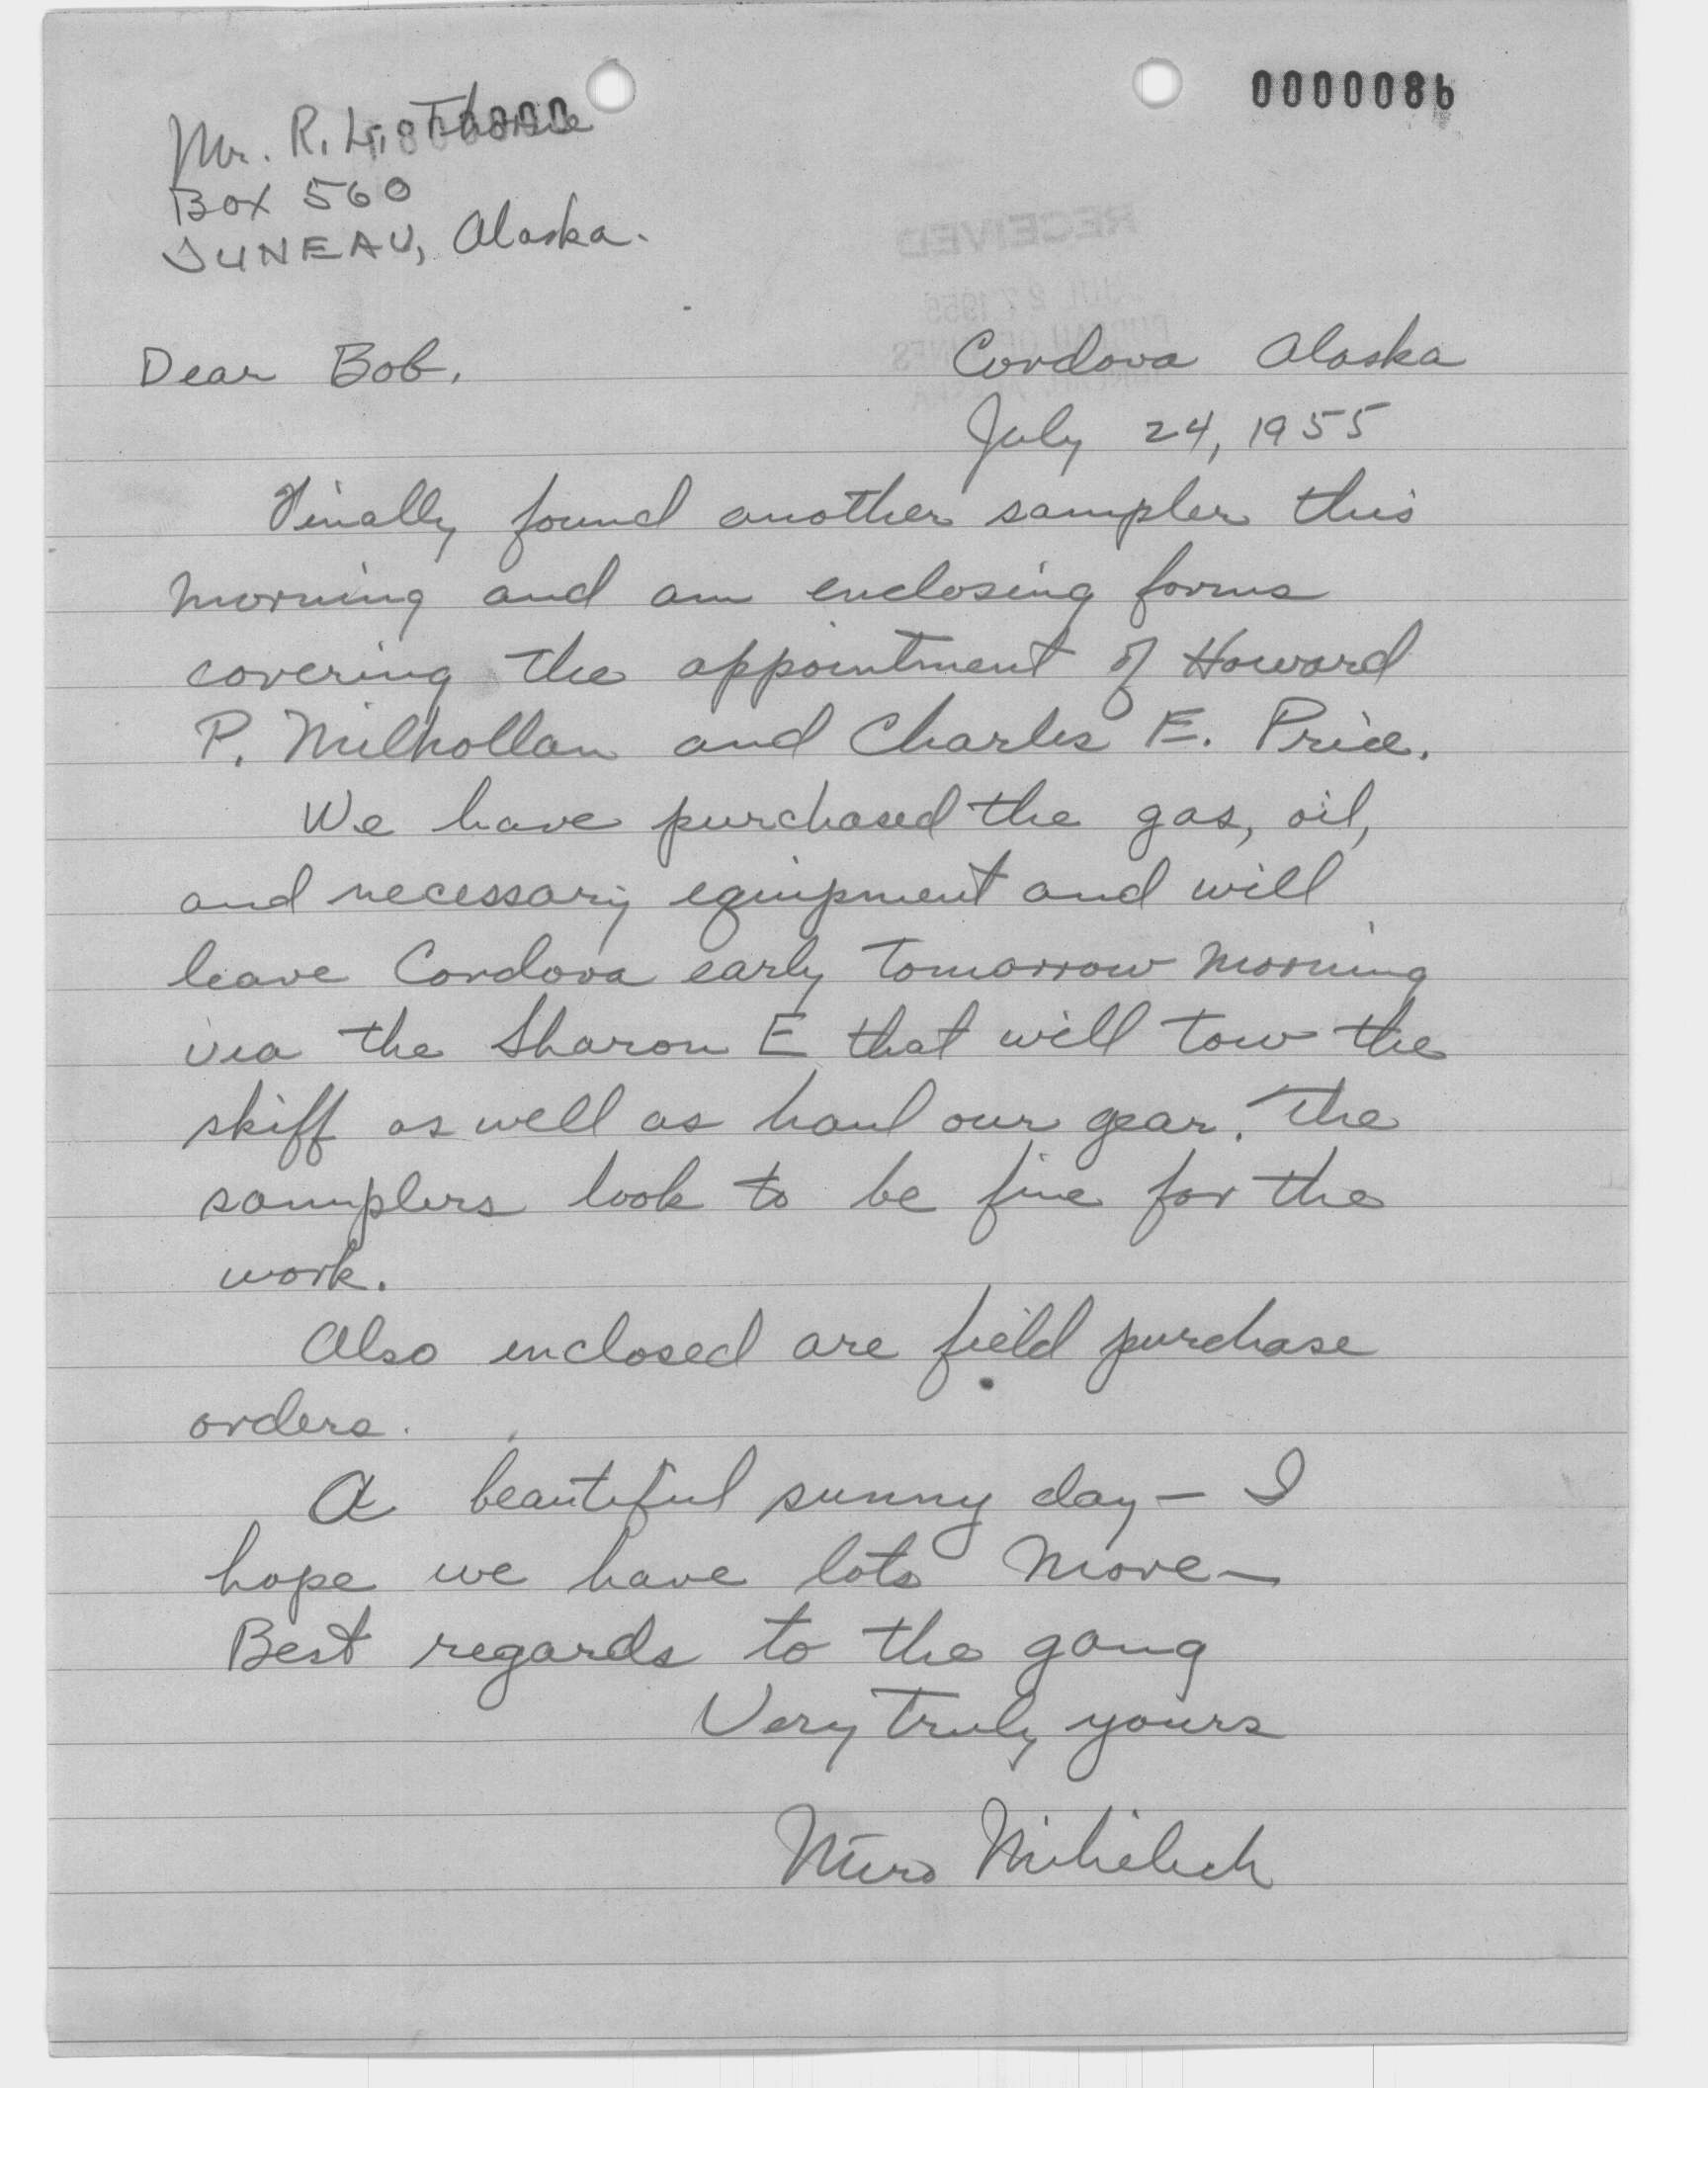 0000086
Mr. R. L. Thorne
Box 560
JUNEAU, Alaska.
RECEIVED
JUL 27 1955
BUREAU OF MINES
Dear Bob,
Cordova Alaska
July 24, 1955
Finally found another sampler this
morning and am enclosing forms
covering the appointment of Howard
P. Milhollan and Charles E. Price.
We have purchased the gas, oil,
and necessary equipment and will
leave Cordova early tomorrow morning
via the Sharon E that will tow the
skiff as well as haul our gear. The
samplers look to be fine for the
work.
Also enclosed are field purchase
orders.
A beautiful sunny day – I
hope we have lots more –
Best regards to the gang
Very truly yours
Miro Mihelich